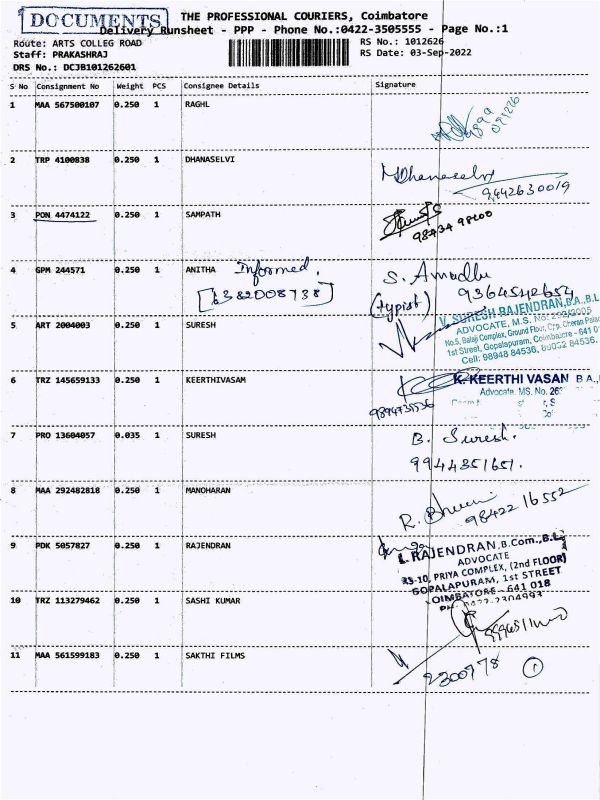 DOCUMENTS
THE PROFESSIONAL COURIERS, Coimbatore
Delivery Runsheet - PPP - Phone No.:0422-3505555 - Page No.:1
Route: ARTS COLLEG ROAD
RS No.: 1012626
Staff: PRAKASHRAJ
RS Date: 03-Sep-2022
DRS No.: DCJB101262601
S No Consignment No Weight PCS Consignee Details Signature
1 MAA 567500107 0.250 1 RAGHL
2 TRP 4100838 0.250 1 DHANASELVI
M Dhanaselvi
9442630019
3 PON 4474122 0.250 1 SAMPATH
98434 98400
4 GPM 244571 0.250 1 ANITHA Informed,
6382008738
S. Amudhu
(typist) 9364542654
5 ART 2004003 0.250 1 SURESH
V. SURESH RAJENDRAN, B.A., B.L
ADVOCATE, M.S. No:
No.5, Balaji Complex, Ground Floor, Opp. Cheran
1st Street, Gopalapuram, Coimbatore - 641
Cell: 98948 84536,
6 TRZ 145659133 0.250 1 KEERTHIVASAM
K. KEERTHI VASAN B A.,
Advocate. MS. No.
7 PRO 13604057 0.035 1 SURESH
B. Suresh.
9944351651.
8 MAA 292482818 0.250 1 MANOHARAN
R.
98422 16552
9 PDK 5057827 0.250 1 RAJENDRAN
L. RAJENDRAN, B.Com., B.L.,
ADVOCATE
PRIYA COMPLEX, (2nd FLOOR)
GOPALAPURAM, 1st STREET
COIMBATORE - 641 018
PH: 0422-2304993
10 TRZ 113279462 0.250 1 SASHI KUMAR
11 MAA 561599183 0.250 1 SAKTHI FILMS
2300778 1